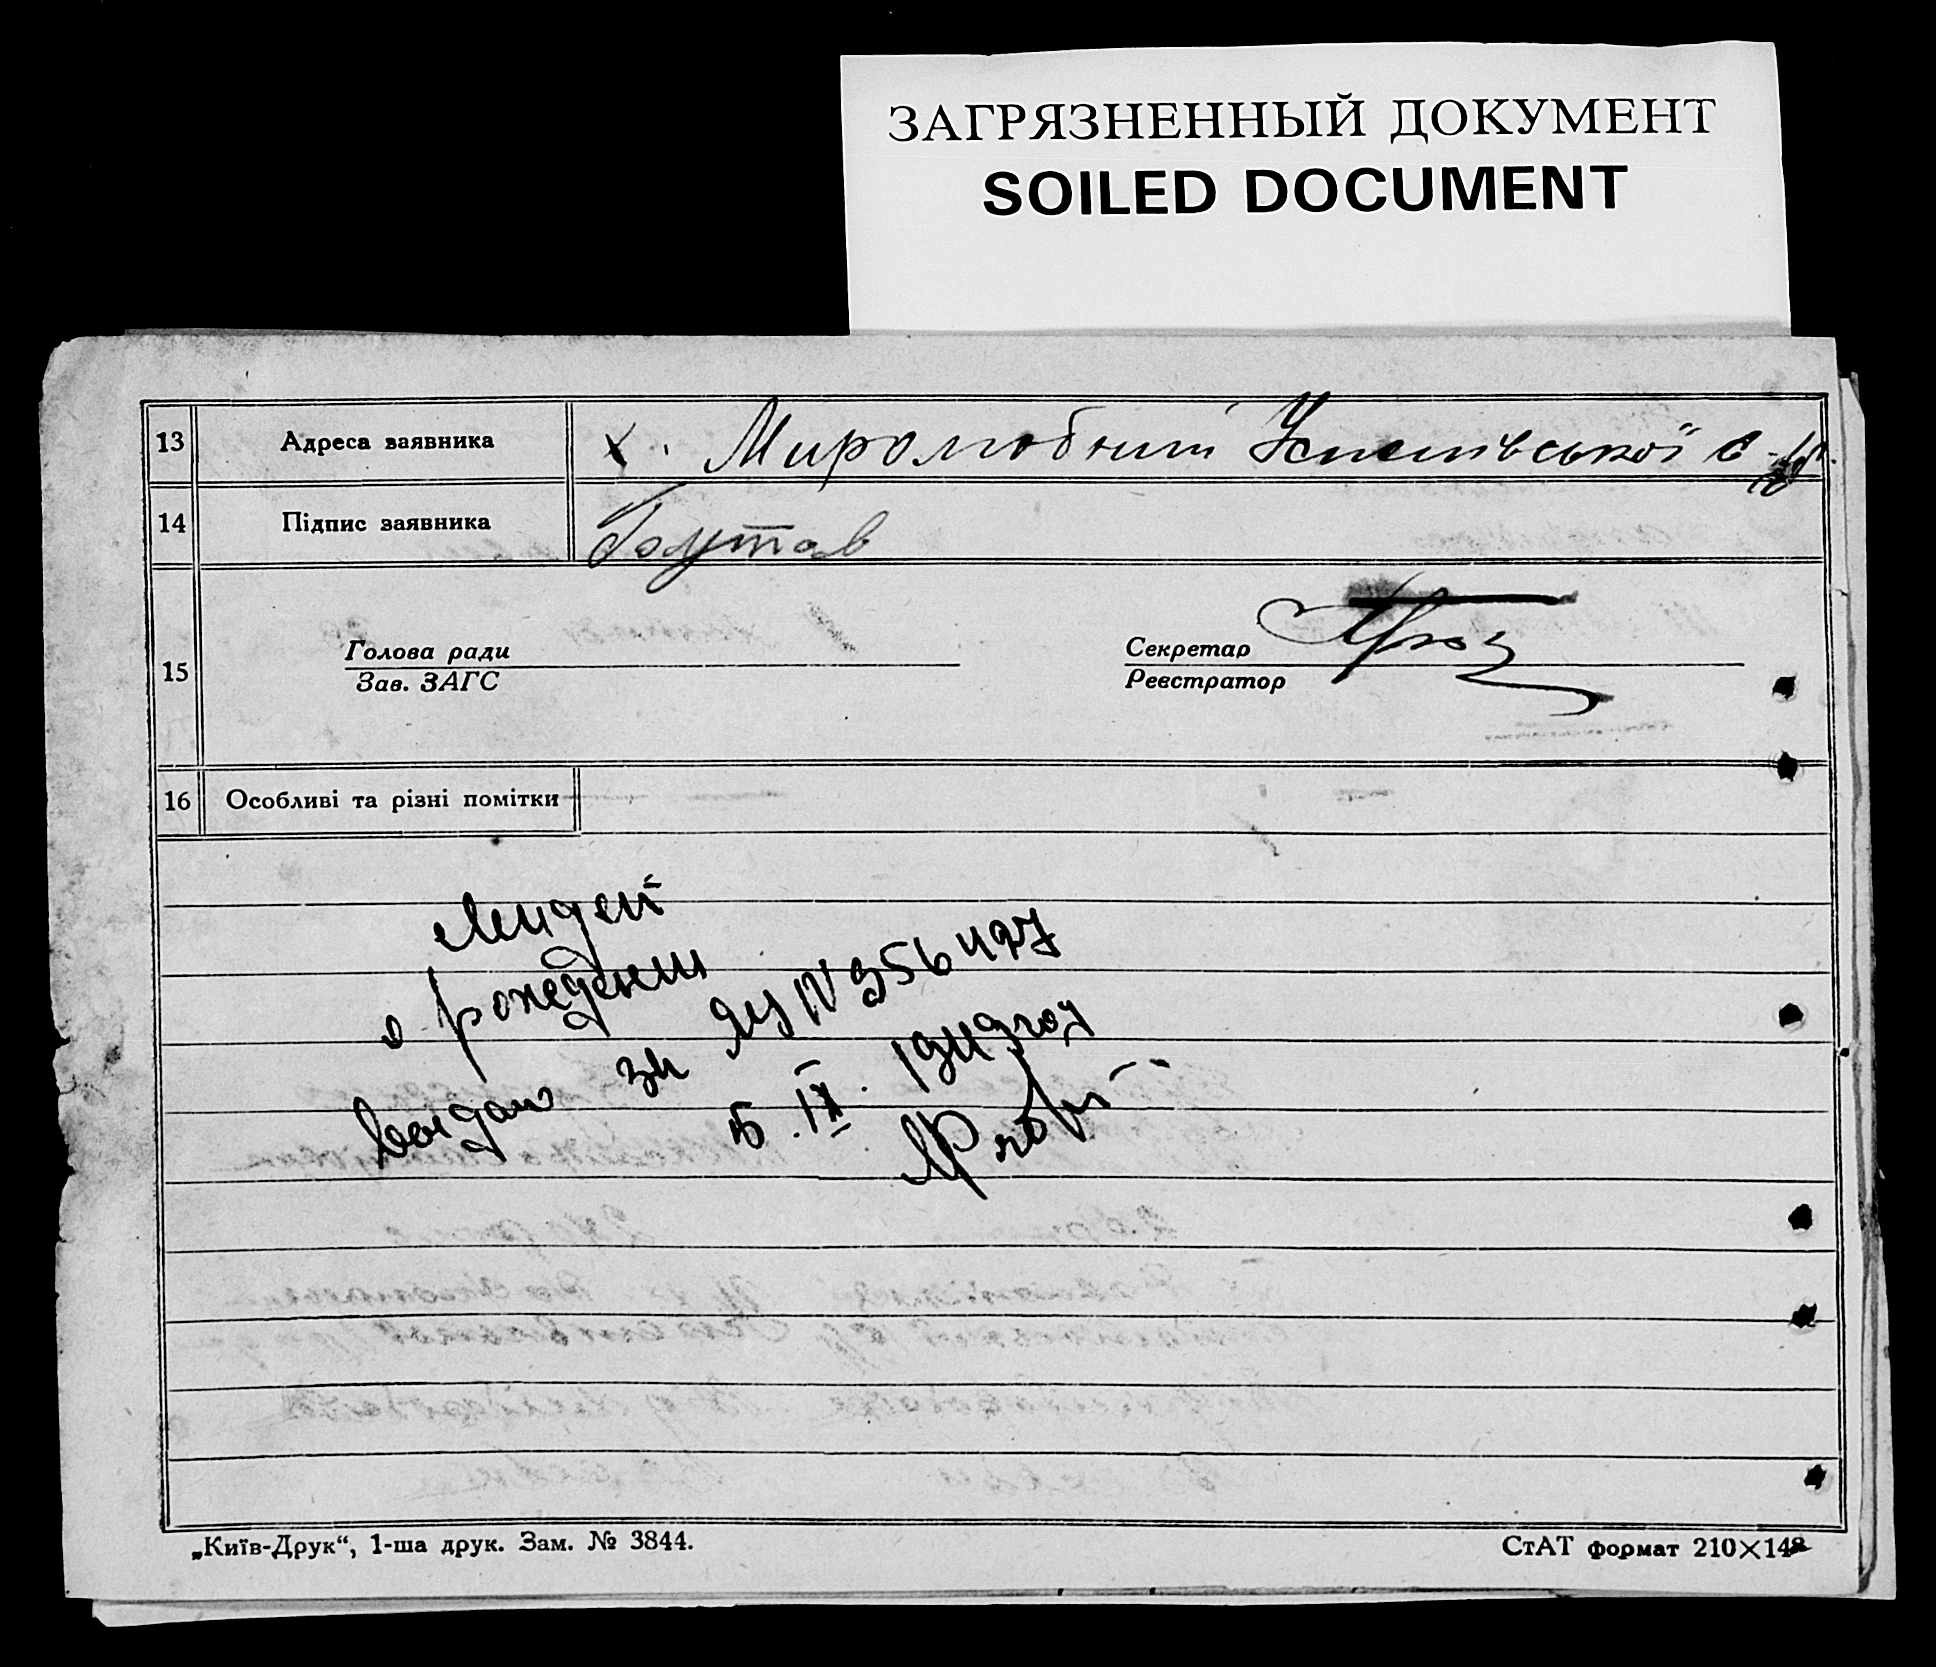 ЗАГРЯЗНЕННЫЙ ДОКУМЕНТ
SOILED DOCUMENT
13 Адреса заявника х. Миролюбний с-р.
14 Підпис заявника
15 Голова ради Секретар
Зав. ЗАГС Реєстратор
16 Особливі та різні помітки
о рождении
за ЯУ № 356497
5. IX. 1949 году
„Київ-Друк“, 1-ша друк. Зам. № 3844. СтАТ формат 210×148